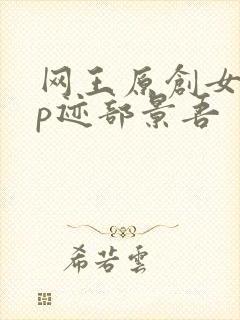 网王原創女
p迹部景吾
希若雲